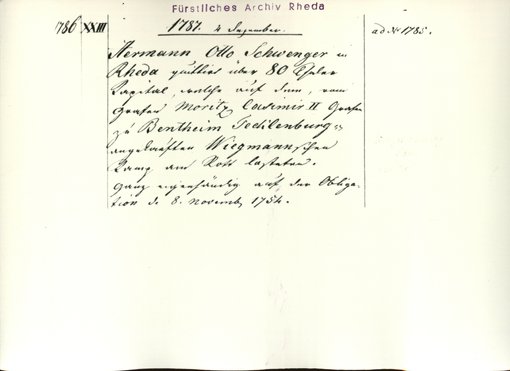 Fürstliches Archiv Rheda
786 XXIII 1787. 4 Dezember. ad No 1785.
Hermann Otto Schwenger in
Rheda quittirt über 80 Thaler
Kapital, welche auf dem, vom
Grafen Moritz Casimir II Grafen
zu Bentheim Tecklenburg
angekauften Wiegmann'schen
Kamp am Rott lasteten.
Ganz eigenhändig auf der Obliga-
tion d. 8. Novemb. 1754.